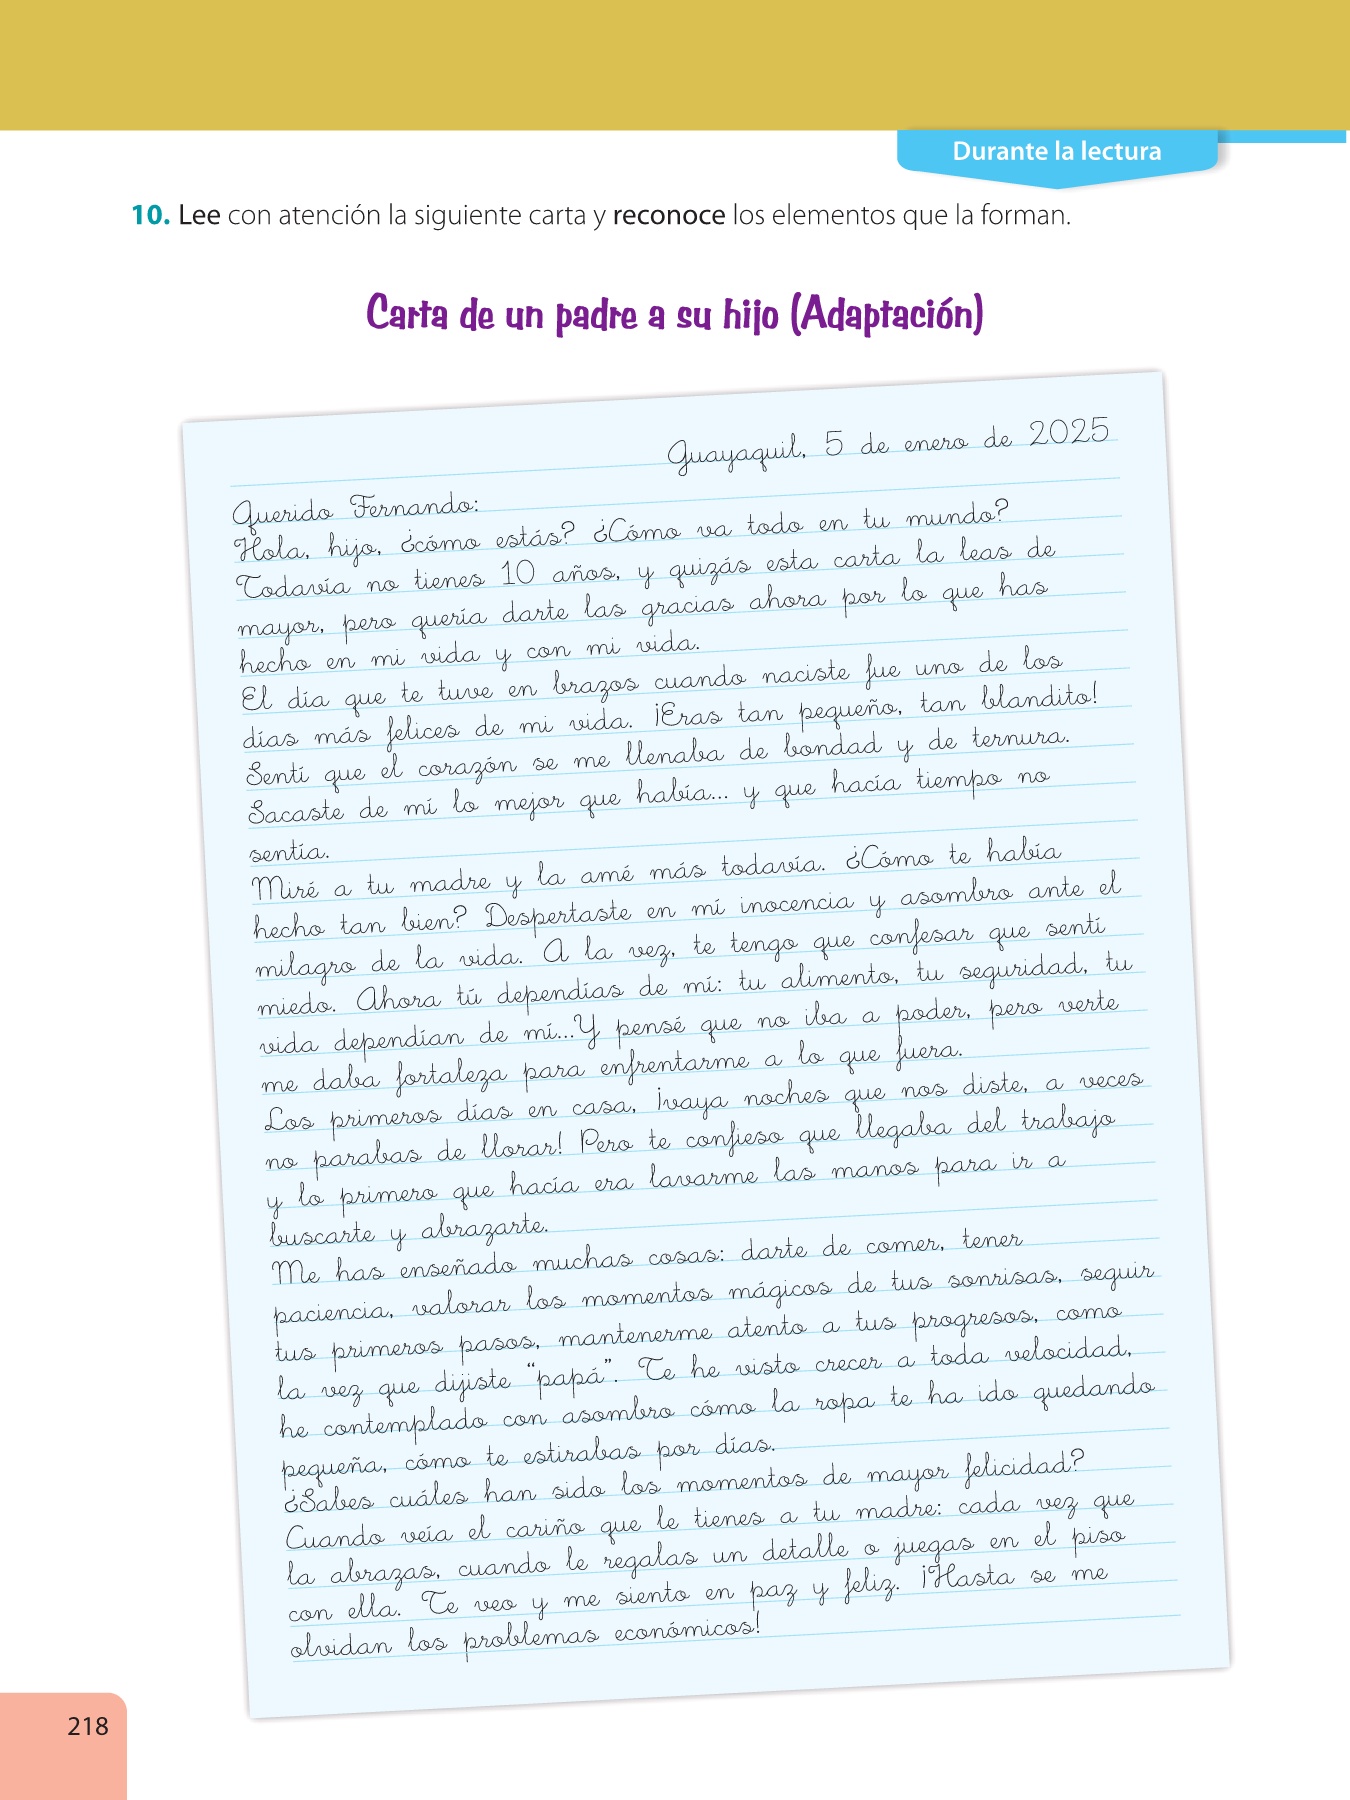 Durante la lectura
10. Lee con atención la siguiente carta y reconoce los elementos que la forman.
Carta de un padre a su hijo (Adaptación)
Guayaquil, 5 de enero de 2025
Querido Fernando:
Hola, hijo, ¿cómo estás? ¿Cómo va todo en tu mundo?
Todavía no tienes 10 años, y quizás esta carta la leas de
mayor, pero quería darte las gracias ahora por lo que has
hecho en mi vida y con mi vida.
El día que te tuve en brazos cuando naciste fue uno de los
días más felices de mi vida. ¡Eras tan pequeño, tan blandito!
Sentí que el corazón se me llenaba de bondad y de ternura.
Sacaste de mí lo mejor que había... y que hacía tiempo no
sentía.
Miré a tu madre y la amé más todavía. ¿Cómo te había
hecho tan bien? Despertaste en mí inocencia y asombro ante el
milagro de la vida. A la vez, te tengo que confesar que sentí
miedo. Ahora tú dependías de mí: tu alimento, tu seguridad, tu
vida dependían de mí...Y pensé que no iba a poder, pero verte
me daba fortaleza para enfrentarme a lo que fuera.
Los primeros días en casa, ¡vaya noches que nos diste, a veces
no parabas de llorar! Pero te confieso que llegaba del trabajo
y lo primero que hacía era lavarme las manos para ir a
buscarte y abrazarte.
Me has enseñado muchas cosas: darte de comer, tener
paciencia, valorar los momentos mágicos de tus sonrisas, seguir
tus primeros pasos, mantenerme atento a tus progresos, como
la vez que dijiste “papá”. Te he visto crecer a toda velocidad,
he contemplado con asombro cómo la ropa te ha ido quedando
pequeña, cómo te estirabas por días.
¿Sabes cuáles han sido los momentos de mayor felicidad?
Cuando veía el cariño que le tienes a tu madre: cada vez que
la abrazas, cuando le regalas un detalle o juegas en el piso
con ella. Te veo y me siento en paz y feliz. ¡Hasta se me
olvidan los problemas económicos!
218